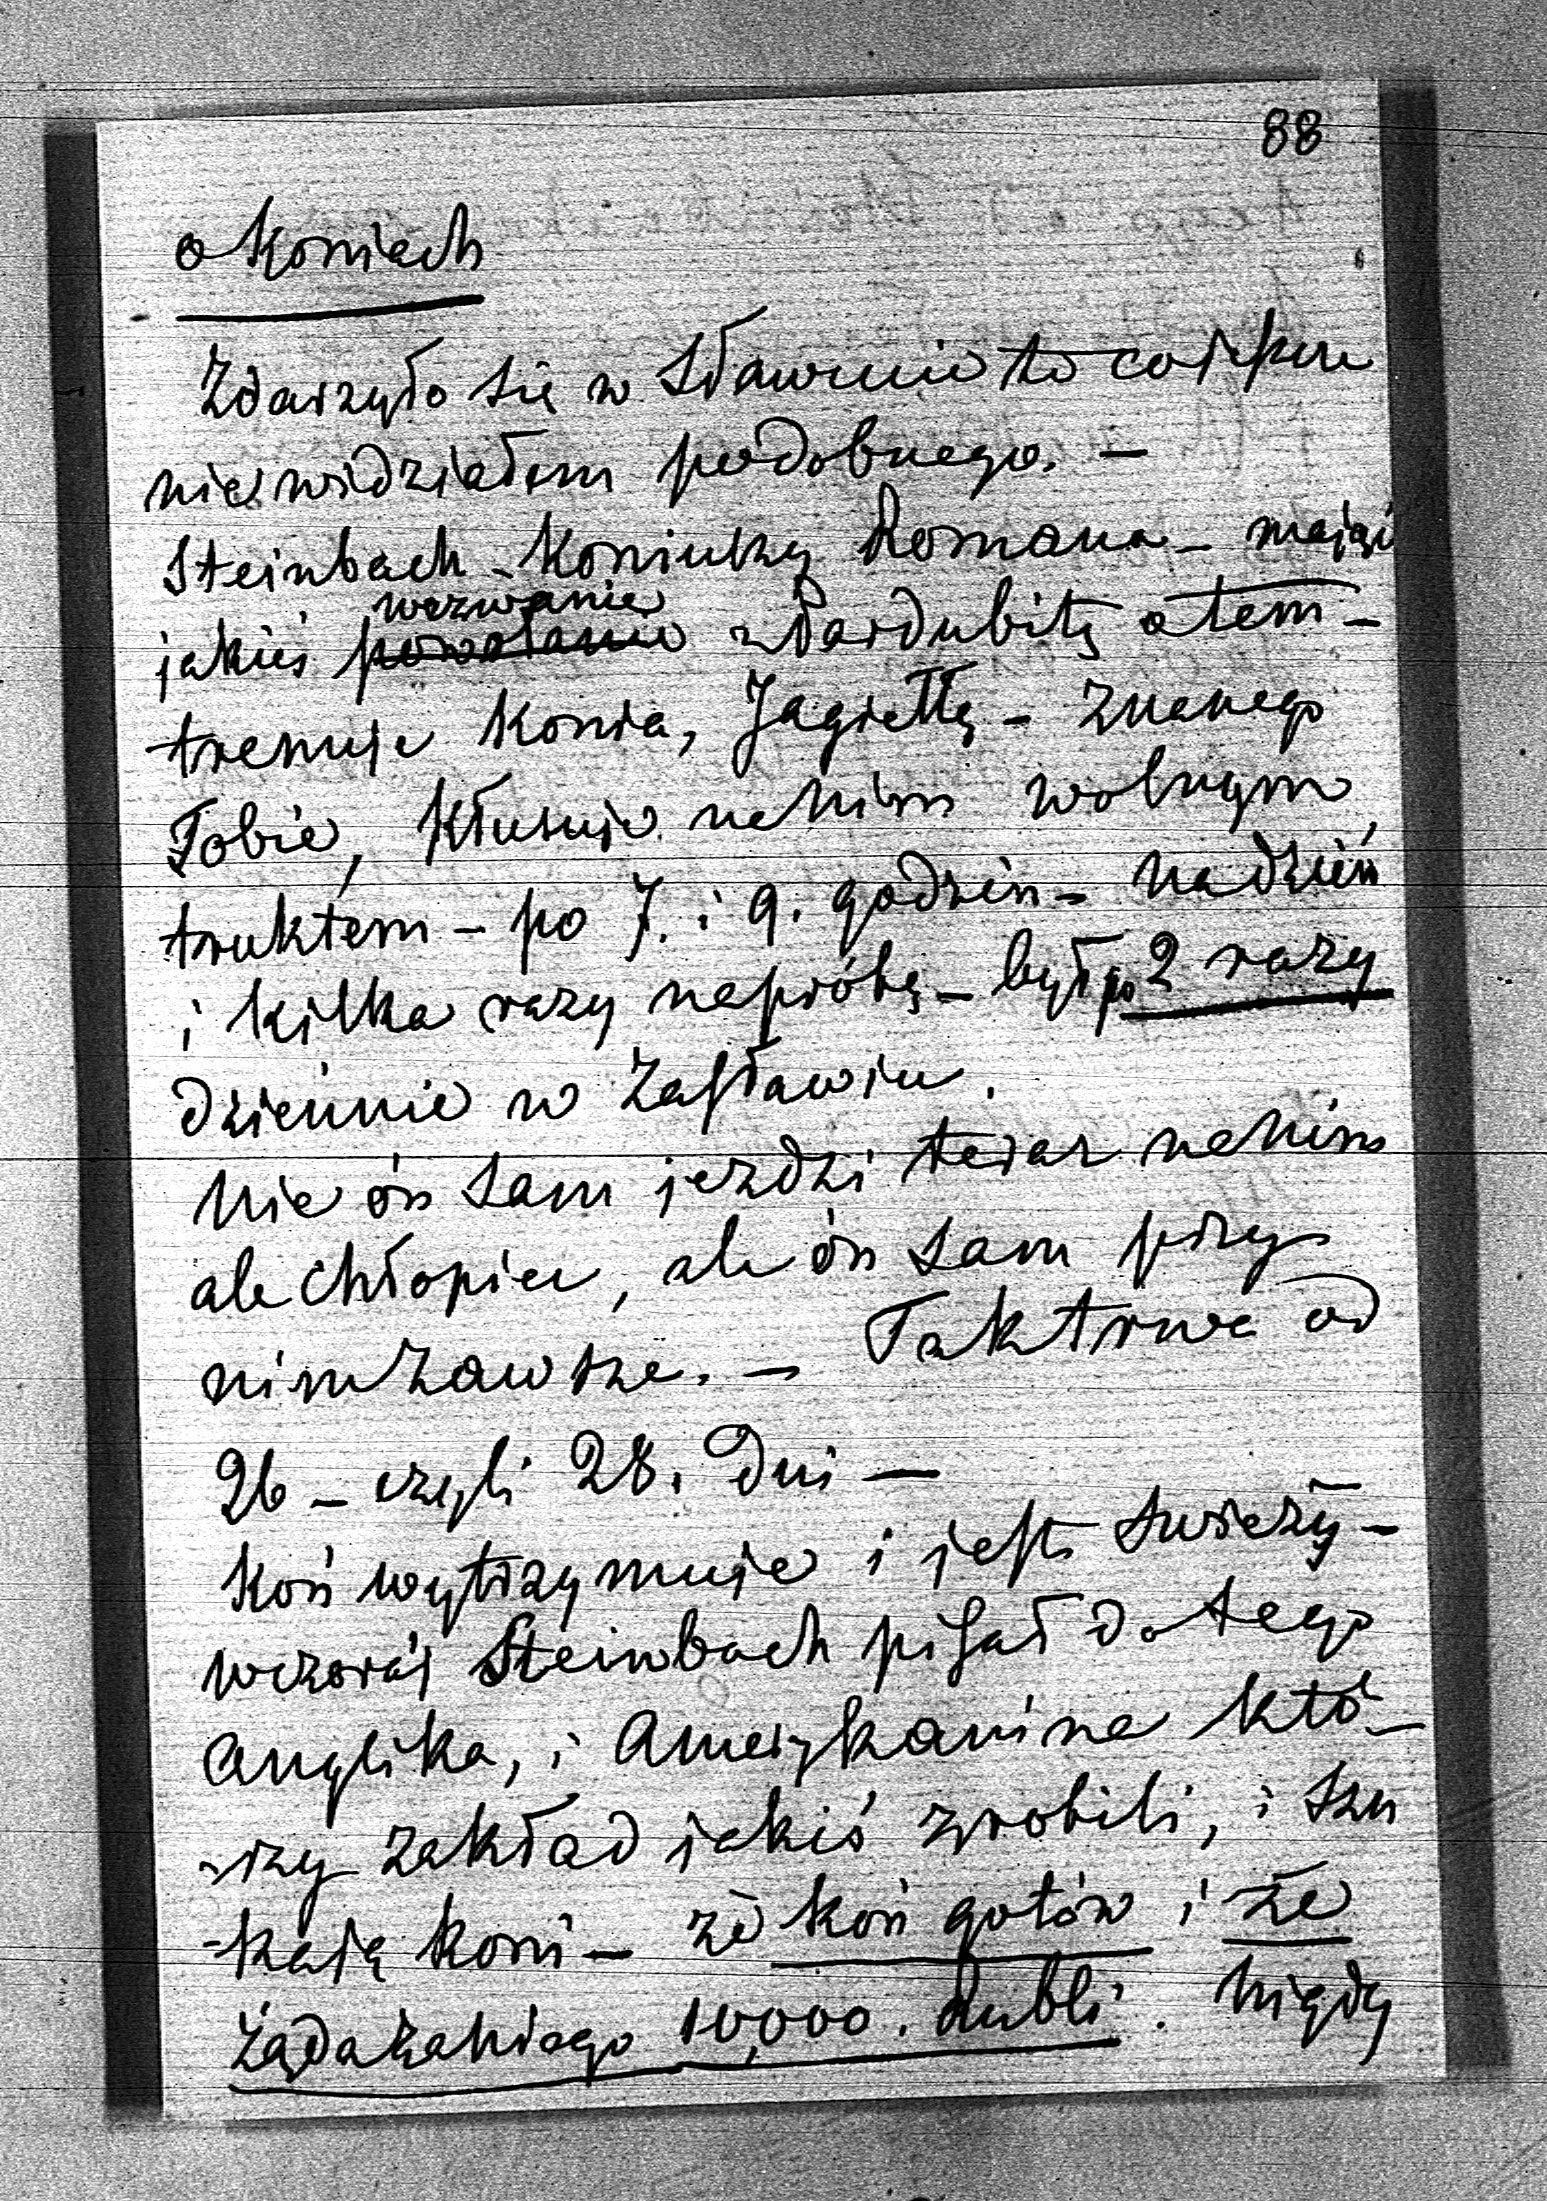 88
o koniach
Zdarzyło się w Sławucie to co jeszcze
nie widziałem podobnego. –
Steinbach – Koniuszy Romana – mając
wezwanie
jakieś powołanie z Pardubitz o tem –
trenuje konia, Jagiełłę – znanego
Tobie, kłusuje na nim wolnym
truktem – po 7. i 9. godzin – na dzień
i kilka razy na próbę – był po 2 razy
dziennie w Zasławiu.
Nie ón sam jezdzi teraz na nim
ale chłopiec, ale ón sam przy
nim zawsze. – Tak trwa od
26 – czyli 28. Dni –
Koń wytrzymuje i jest swieży –
wczoraj Steinbach pisał do tego
Anglika, i Amerykanina któ–
–rzy zakład jakiś zrobili, i szu
–kają koni – że koń gotów i że
żąda za niego 10,000. Rubli. Nigdy